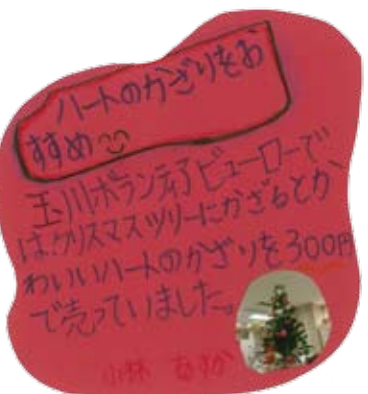 ハートのかざりをお
すすめ
玉川ボランティアビューローで
は、クリスマスツリーにかざるとか、
わいいハートのかざりを300円
で売っていました。
小林